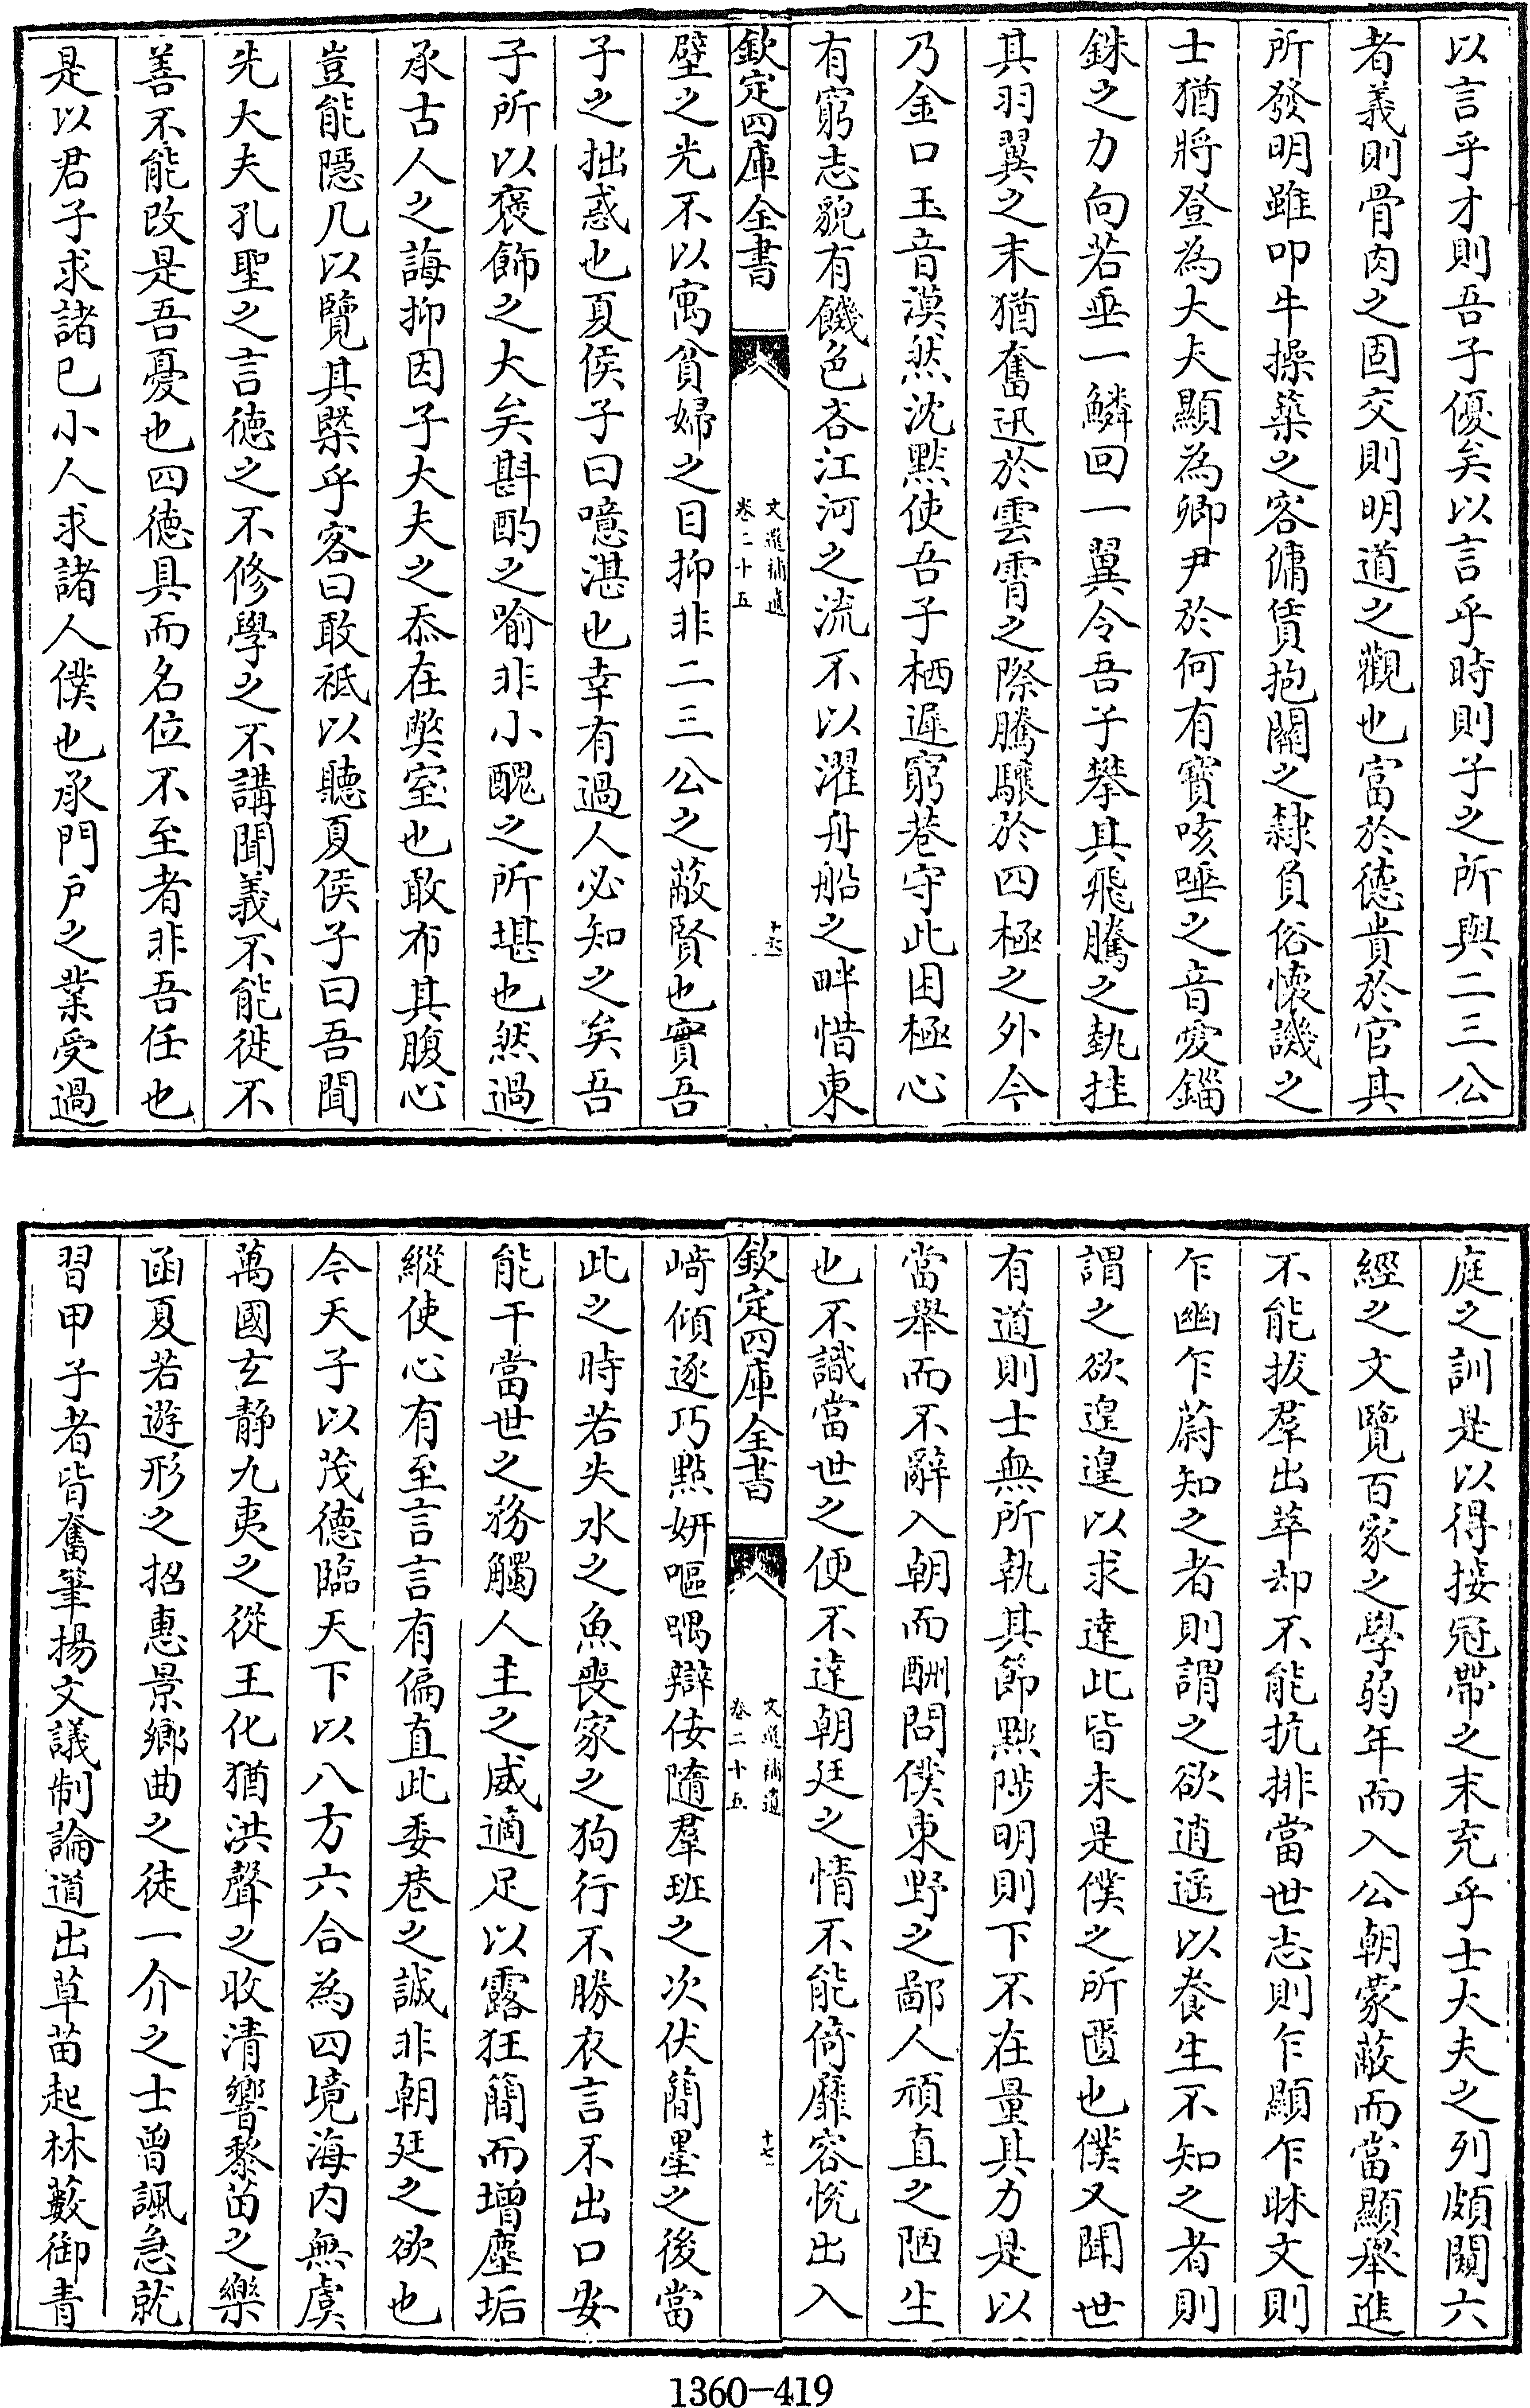 以言乎才則吾子優矣以言乎時則子之所與二三公
者義則骨肉之固交則明道之觀也富於德貴於官其
所發明雖叩牛操築之客傭賃抱關之隸負俗懷譏之
士猶將登為大夫顯為卿尹於何有寶咳唾之音愛錙
銖之力向若垂一鱗回一翼令吾子攀其飛騰之執挂
其羽翼之末猶奮迅於雲霄之際騰驤於四極之外今
乃金口玉音漠然沈默使吾子栖遲窮巷守此困極心
有窮志貌有饑色吝江河之流不以濯舟船之畔惜東
欽定四庫全書
文選補遺
卷二十五
十六
壁之光不以寓貧婦之目抑非二三公之蔽賢也實吾
子之拙惑也夏侯子曰噫湛也幸有過人必知之矣吾
子所以褒飾之大矣斟酌之喻非小醜之所堪也然過
承古人之誨抑因子大夫之忝在獘室也敢布其腹心
豈能隱几以覽其槩乎客曰敢祗以聽夏侯子曰吾聞
先大夫孔聖之言德之不修學之不講聞義不能徙不
善不能改是吾憂也四德具而名位不至者非吾任也
是以君子求諸已小人求諸人僕也承門戶之業受過
庭之訓是以得接冠帶之末充乎士大夫之列頗闚六
經之文覽百家之學弱年而入公朝蒙蔽而當顯舉進
不能拔羣出萃却不能抗排當世志則乍顯乍昧文則
乍幽乍蔚知之者則謂之欲逍遥以養生不知之者則
謂之欲遑遑以求達此皆未是僕之所匿也僕又聞世
有道則士無所執其節黜陟明則下不在量其力是以
當舉而不辭入朝而酬問僕東野之鄙人頑直之陋生
也不識當世之便不達朝廷之情不能倚靡容悅出入
欽定四庫全書
文選補遺
卷二十五
十七
崎傾逐巧點妍嘔喁辯佞隨羣班之次伏簡墨之後當
此之時若失水之魚喪家之狗行不勝衣言不出口安
能干當世之務觸人主之威適足以露狂簡而增塵垢
縱使心有至言言有偏直此委巷之誠非朝廷之欲也
今天子以茂德臨天下以八方六合為四境海內無虞
萬國玄靜九夷之從王化猶洪聲之收清響黎苗之樂
函夏若遊形之招惠景鄉曲之徒一介之士曾諷急就
習甲子者皆奮筆揚文議制論道出草苗起林藪御青
1360-419